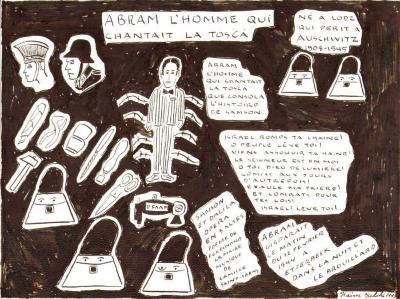 ABRAM L'HOMME QUI
CHANTAIT LA TOSCA
NÉ A LODZ
QUI PÉRIT A
AUSCHWITZ
1904-1945
ABRAM
L'HOMME
QUI CHANTAIT
LA TOSCA
QUE CONSOLA
L'HISTOIRE
DE SAMSON.
ISRAEL ROMPS TA CHAINE!
O PEUPLE LÈVE TOI!
VIENS ASSOUVIR TA HAINE!
LE SEIGNEUR EST EN MOI
O TOI DIEU DE LUMIÈRE!
COMME AUX JOURS
D'AUTREFOIS!
EXAUCE MA PRIÈRE!
ET COMBATS POUR
TES LOIS!
ISRAEL! LÈVE TOI!
SAMSON
ET DALILA
OPERA
EN 3 ACTES
POEME DE
FERDINAND
LEMAIRE
MUSIQUE
DE
CAMILLE
SAINT-SAENS
ABRAM
DISPARAIT
LE MATIN
DU 12 FEVRIER
1944 A
ETTERBEEK
DANS LA NUIT ET
LE BROUILLARD
PFAFF